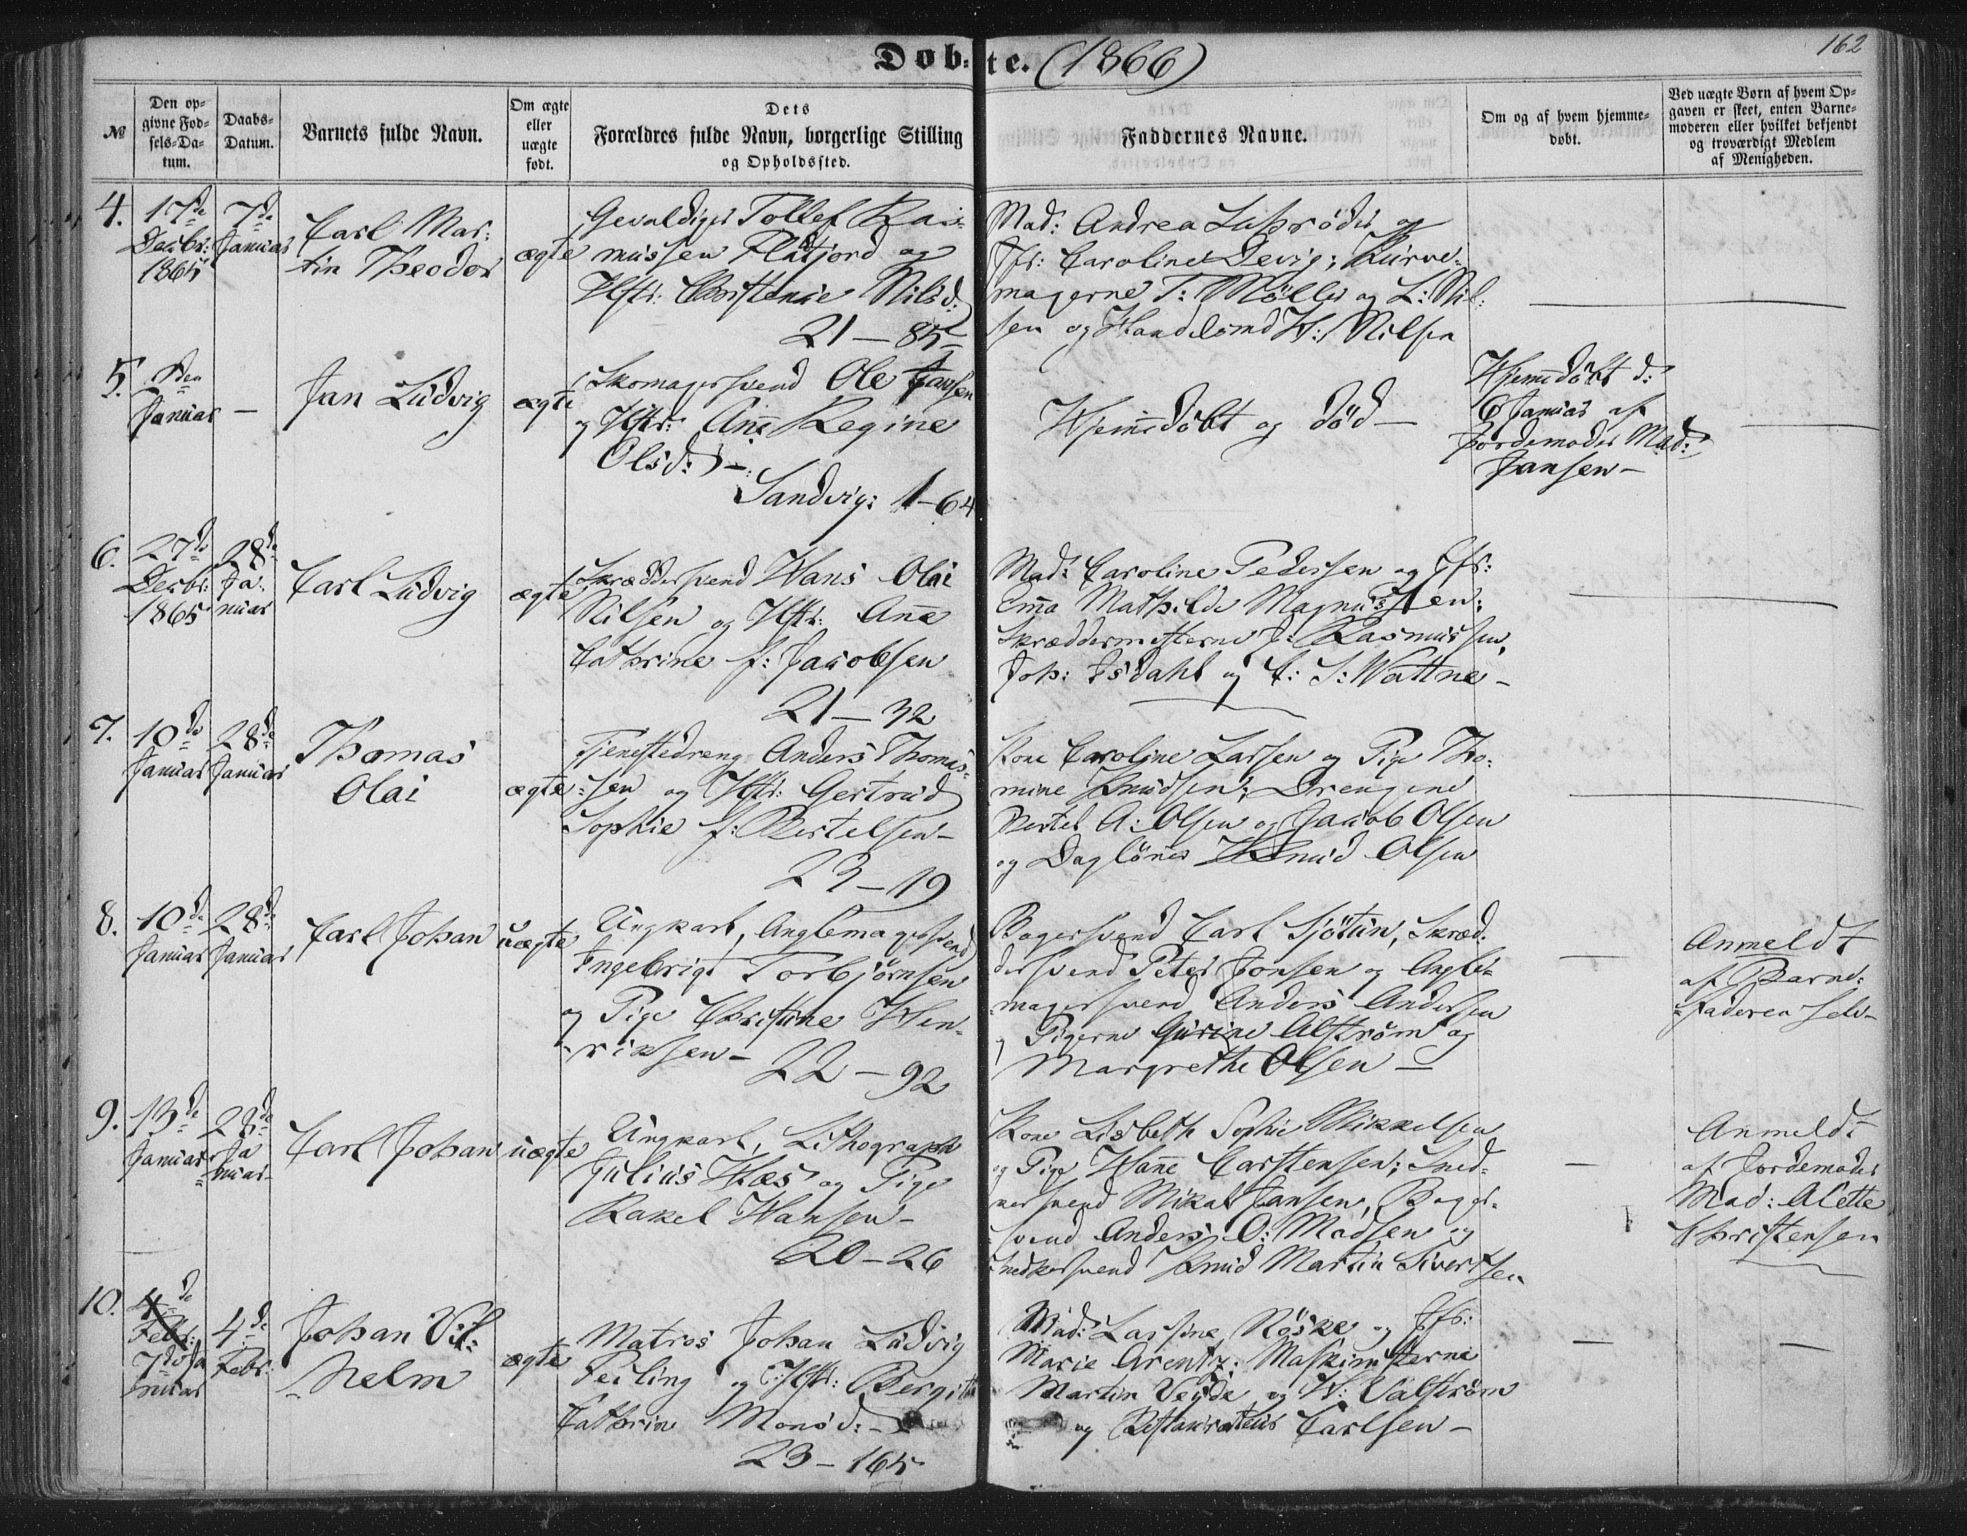 162
Døb-te. (1866)
№
Den op-
givne Fød-
sels-Da-
tum.
Daabs-
Datum.
Barnets fulde Navn.
Om ægte
eller
uægte
født.
Dets
Forældres fulde Navn, borgerlige Stilling
og Opholdssted.
Faddernes Navne.
Om og af hvem hjemme-
døbt.
Ved uægte Børn af hvem Op-
gaven er skeet, enten Barne-
moderen eller hvilket bekjendt
og troværdigt Medlem
af Menigheden.
4.
17de
Decbr:
1865
7de
Januar
Carl Mar-
tin Theodor
ægte
Gevaldiger Tollef Ras-
mussen Flatjord og
Hstr: Christensie Nilsd:
21 – 85
Mad: Andrea
Jfr: Caroline Devig; Kurve-
magerne T: Møller og L: Nil-
sen og Handelsmd H: Nilsen
5.
Januar
–
Jan Ludvig
ægte
Skomagersvend Ole Jansen
og Hstr: Anne Regine
Olsd: –
Sandvig: 1–64
Hjemmedøbt og død –
Hjemmedøbt d:
Januar af
Jordemoder Mad:
Jansen –
6.
27de
Decbr:
1865
28de
Ja-
nuar
Carl Ludvig
ægte
Skræddersvend Hans Olai
Nilsen og Hstr: Anne
Cathrine f: Jacobsen
21 – 32
Mad: Caroline Pedersen og Jfr:
Emma Mathilde Magnussen;
Skræddermesterne J: Rasmussen,
Joh: Isdahl og C: S: Wattne –
7.
10de
Januar
28de
Januar
Thomas
Olai
ægte
Tjenestedreng Anders Thomas-
sen og Hstr: Gertrud
Sophie f: Bertelsen –
23 – 19
Kone Caroline Larsen og Pige Tho-
mine Knudsen; Drengene
Bertel A: Olsen og Jacob Olsen
og Daglønner Knud Olsen
8.
10de
Januar
28de
Januar
Carl Johan
uægte
Ungkarl, Anglemagersvend
Ingebrigt Torbjørnsen
og Pige Christine Hen-
riksen –
22 – 92
Bagersvend Carl Sjøtun, Skræd-
dersvend Peter Jonsen og Angle-
magersvend Anders Andersen
Pigerne Gurine Alstrøm og
Margrethe Olsen –
–
Anmeldt
af Barne-
faderen selv –
9.
13de
Januar
28de
Ja
nuar
Carl Johan
uægte
Ungkarl, Lithograph
Julius Wæs og Pige
Rakel Hansen –
20 – 26
Kone Lisbeth Sophie Mikkelsen
og Pige Hanne Carstensen; Sned-
kersvend Mikal Jansen, Bager-
svend Anders O: Madsen og
Snedkersvend Knud Martin Sivertsen
–
Anmeldt
af Jordemoder
Mad: Alette
Christensen
10.
4de
Febr:
7de Ja
nuar
4de
Febr:
Johan Vil-
helm
ægte
Matros Johan Ludvig
Feiling og Hstr: Bergitte
Cathrin Monsd: –
23 – 165
Mad: Lassine Røske og Jfr:
Marie Arentz; Maskinisterne
Martin Veyde og H: Valstrøm
og Restaurateur Carlsen –
–
–